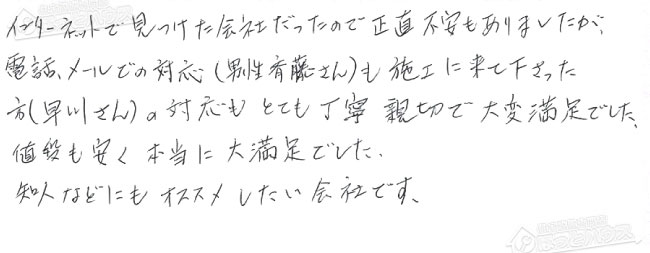 インターネットで見つけた会社だったので正直不安もありましたが、
電話、メールでの対応(男性斉藤さん)も施工に来て下さった
方(早川さん)の対応もとても丁寧親切で大変満足でした。
値段も安く本当に大満足でした。
知人などにもオススメしたい会社です。